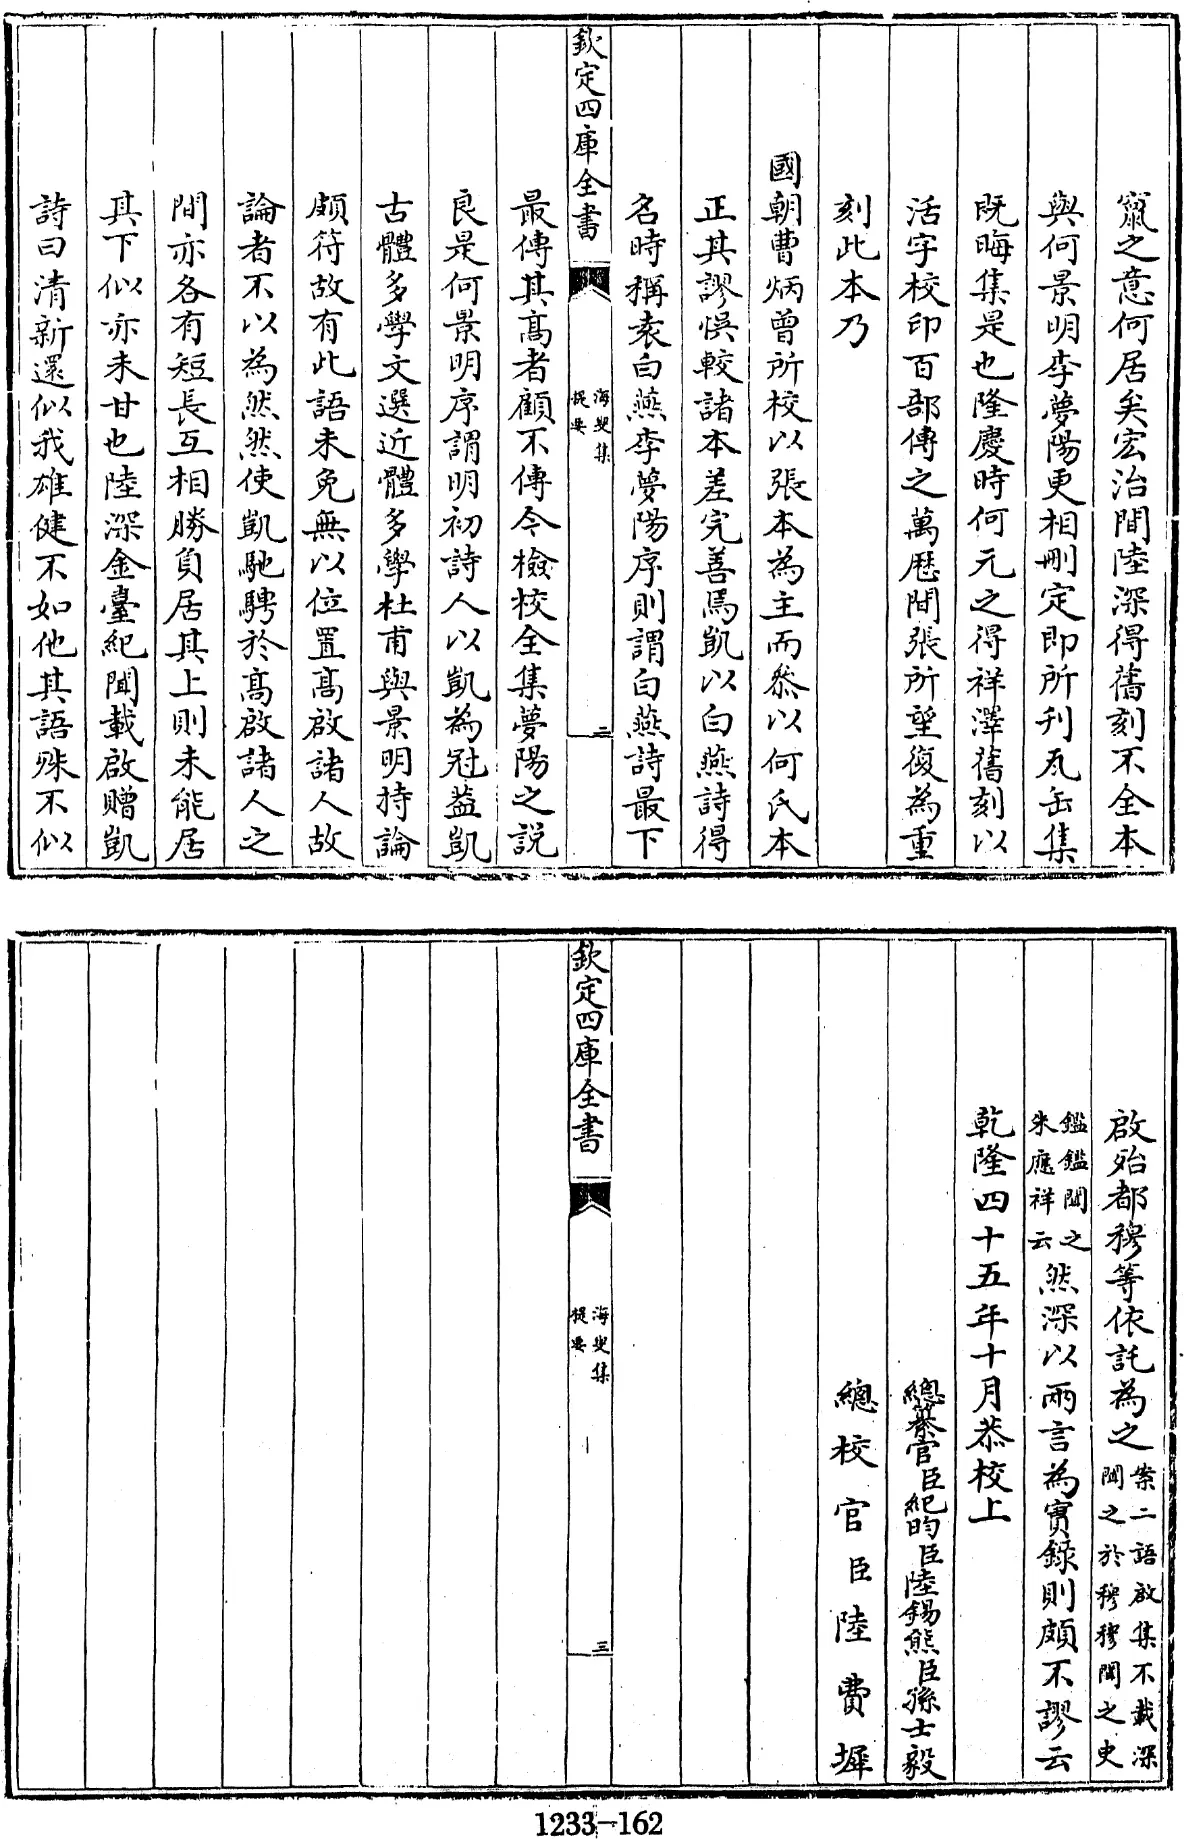 竄之意何居矣宏治間陸深得舊刻不全本
與何景明李夢陽更相刪定即所刋瓦缶集
既晦集是也隆慶時何元之得祥澤舊刻以
活字校印百部傳之萬厯間張所望復為重
刻此本乃
國朝曹炳曾所校以張本為主而叅以何氏本
正其謬悞較諸本差完善焉凱以白燕詩得
名時稱袁白燕李夢陽序則謂白燕詩最下
欽定四庫全書
海叟集
提要
二
最傳其髙者顧不傳今檢校全集夢陽之説
良是何景明序謂明初詩人以凱為冠葢凱
古體多學文選近體多學杜甫與景明持論
頗符故有此語未免無以位置髙啟諸人故
論者不以為然然使凱馳騁於髙啟諸人之
間亦各有短長互相勝負居其上則未能居
其下似亦未甘也陸深金臺紀聞載啟贈凱
詩曰清新還似我雄健不如他其語殊不似
啟殆都穆等依託為之案二語啟集不載深
聞之於穆穆聞之史
鑑鑑聞之
朱應祥云然深以兩言為實録則頗不謬云
乾隆四十五年十月恭校上
總纂官臣紀昀臣陸錫熊臣孫士毅
總校官臣陸費墀
欽定四庫全書
海叟集
提要
三
1233-162